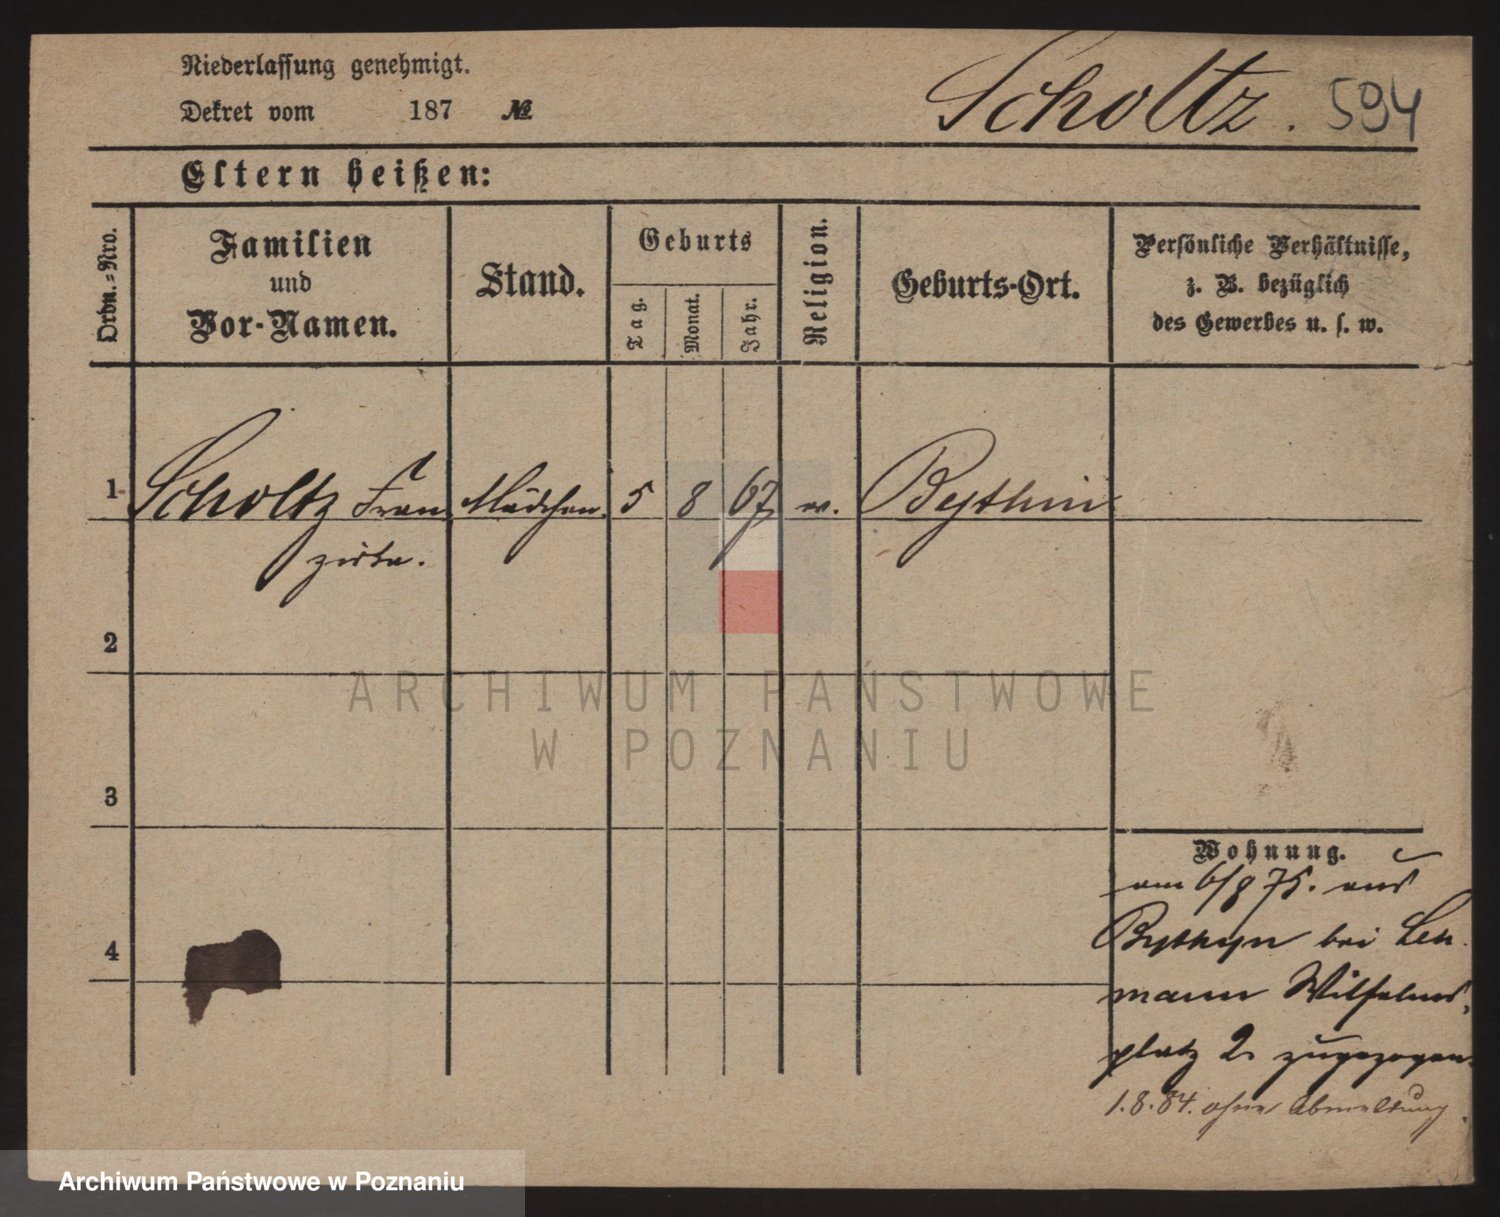 Niederlassung genehmigt.
Dekret vom 187 №
Scholtz. 594
Eltern heißen:
Ordn.-Nro.
Familien
und
Vor-Namen.
Stand.
Geburts
Tag.
Monat.
Jahr.
Religion.
Geburts-Ort.
Persönliche Verhältnisse,
z. B. bezüglich
des Gewerbes u. s. w.
1 Scholtz Fran Mädchen. 5 8 67 Bythin
ziska.
2
ARCHIWUM PAŃSTWOWE
W POZNANIU
3
Wohnung.
am 6/8 75. aus
Bythyn bei Leh
4
mann Wilhelms,
platz 2. zugezogen.
1.8.84. ohne Abmeldung.
Archiwum Państwowe w Poznaniu